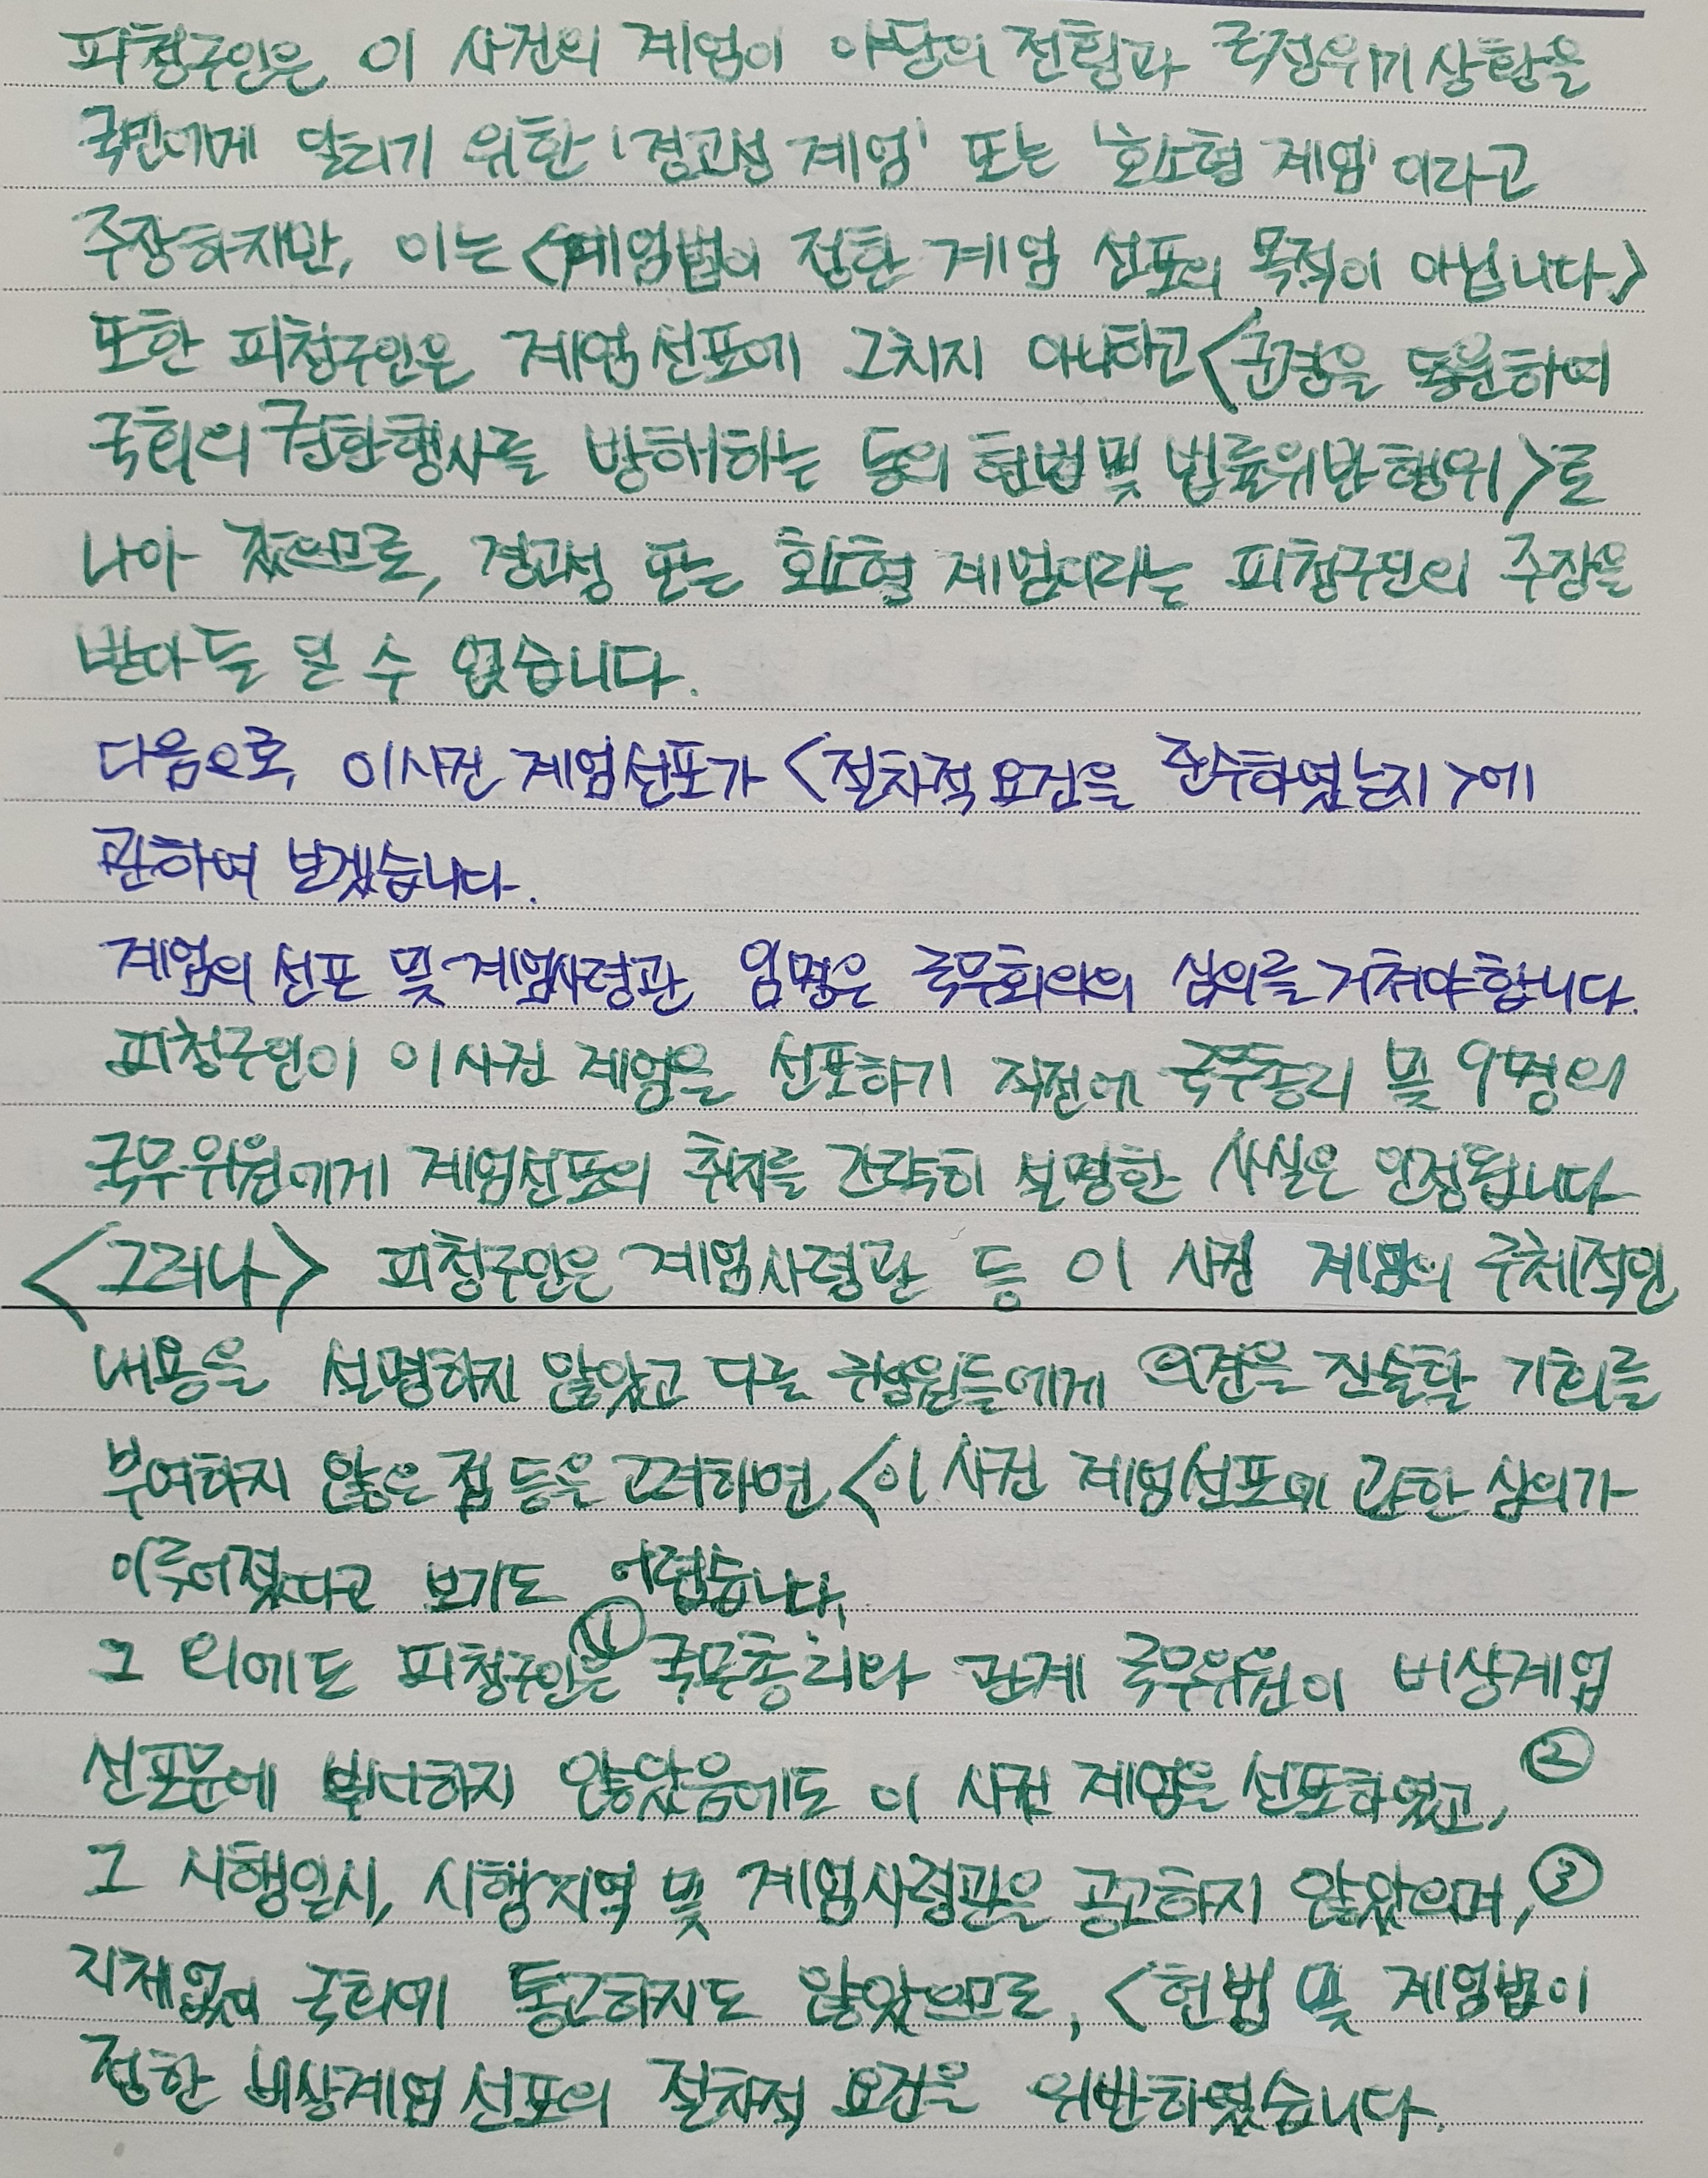 피청구인은 이 사건의 계엄이 야당의 전횡과 국정위기상황을
국민에게 알리기 위한 '경고성 계엄' 또는 '호소형 계엄'이라고
주장하지만, 이는 <계엄법이 정한 계엄 선포의 목적이 아닙니다.>
또한 피청구인은 계엄선포에 그치지 아니하고 <군경을 동원하여
국회의 권한행사를 방해하는 등의 헌법 및 법률위반 행위>로
나아 갔으므로, 경고성 또는 호소형 계엄이라는 피청구인의 주장을
받아들 일 수 없습니다.
다음으로, 이사건 계엄선포가 <절차적 요건을 준수하였는지>에
관하여 보겠습니다.
계엄의 선포 및 계엄사령관 임명은 국무회의의 심의를 거쳐야 합니다.
피청구인이 이사건 계엄을 선포하기 직전에 국무총리 및 9명의
국무위원에게 계엄선포의 취지를 간략히 설명한 사실은 인정됩니다
<그러나> 피청구인은 계엄사령관 등 이 사건 계엄의 구체적인
내용을 설명하지 않았고 다른 구성원들에게 의견을 진술할 기회를
부여하지 않은 점 등을 고려하면 <이 사건 계엄선포에 관한 심의가
이루어졌다고 보기도 어렵습니다.
그 외에도 피청구인은 ① 국무총리와 관계 국무위원이 비상계엄
선포문에 부서하지 않았음에도 이 사건 계엄을 선포하였고, ②
그 시행일시, 시행지역 및 계엄사령관을 공고하지 않았으며, ③
지체없이 국회에 통고하지도 않았으므로, <헌법 및 계엄법이
정한 비상계엄 선포의 절차적 요건을 위반하였습니다.